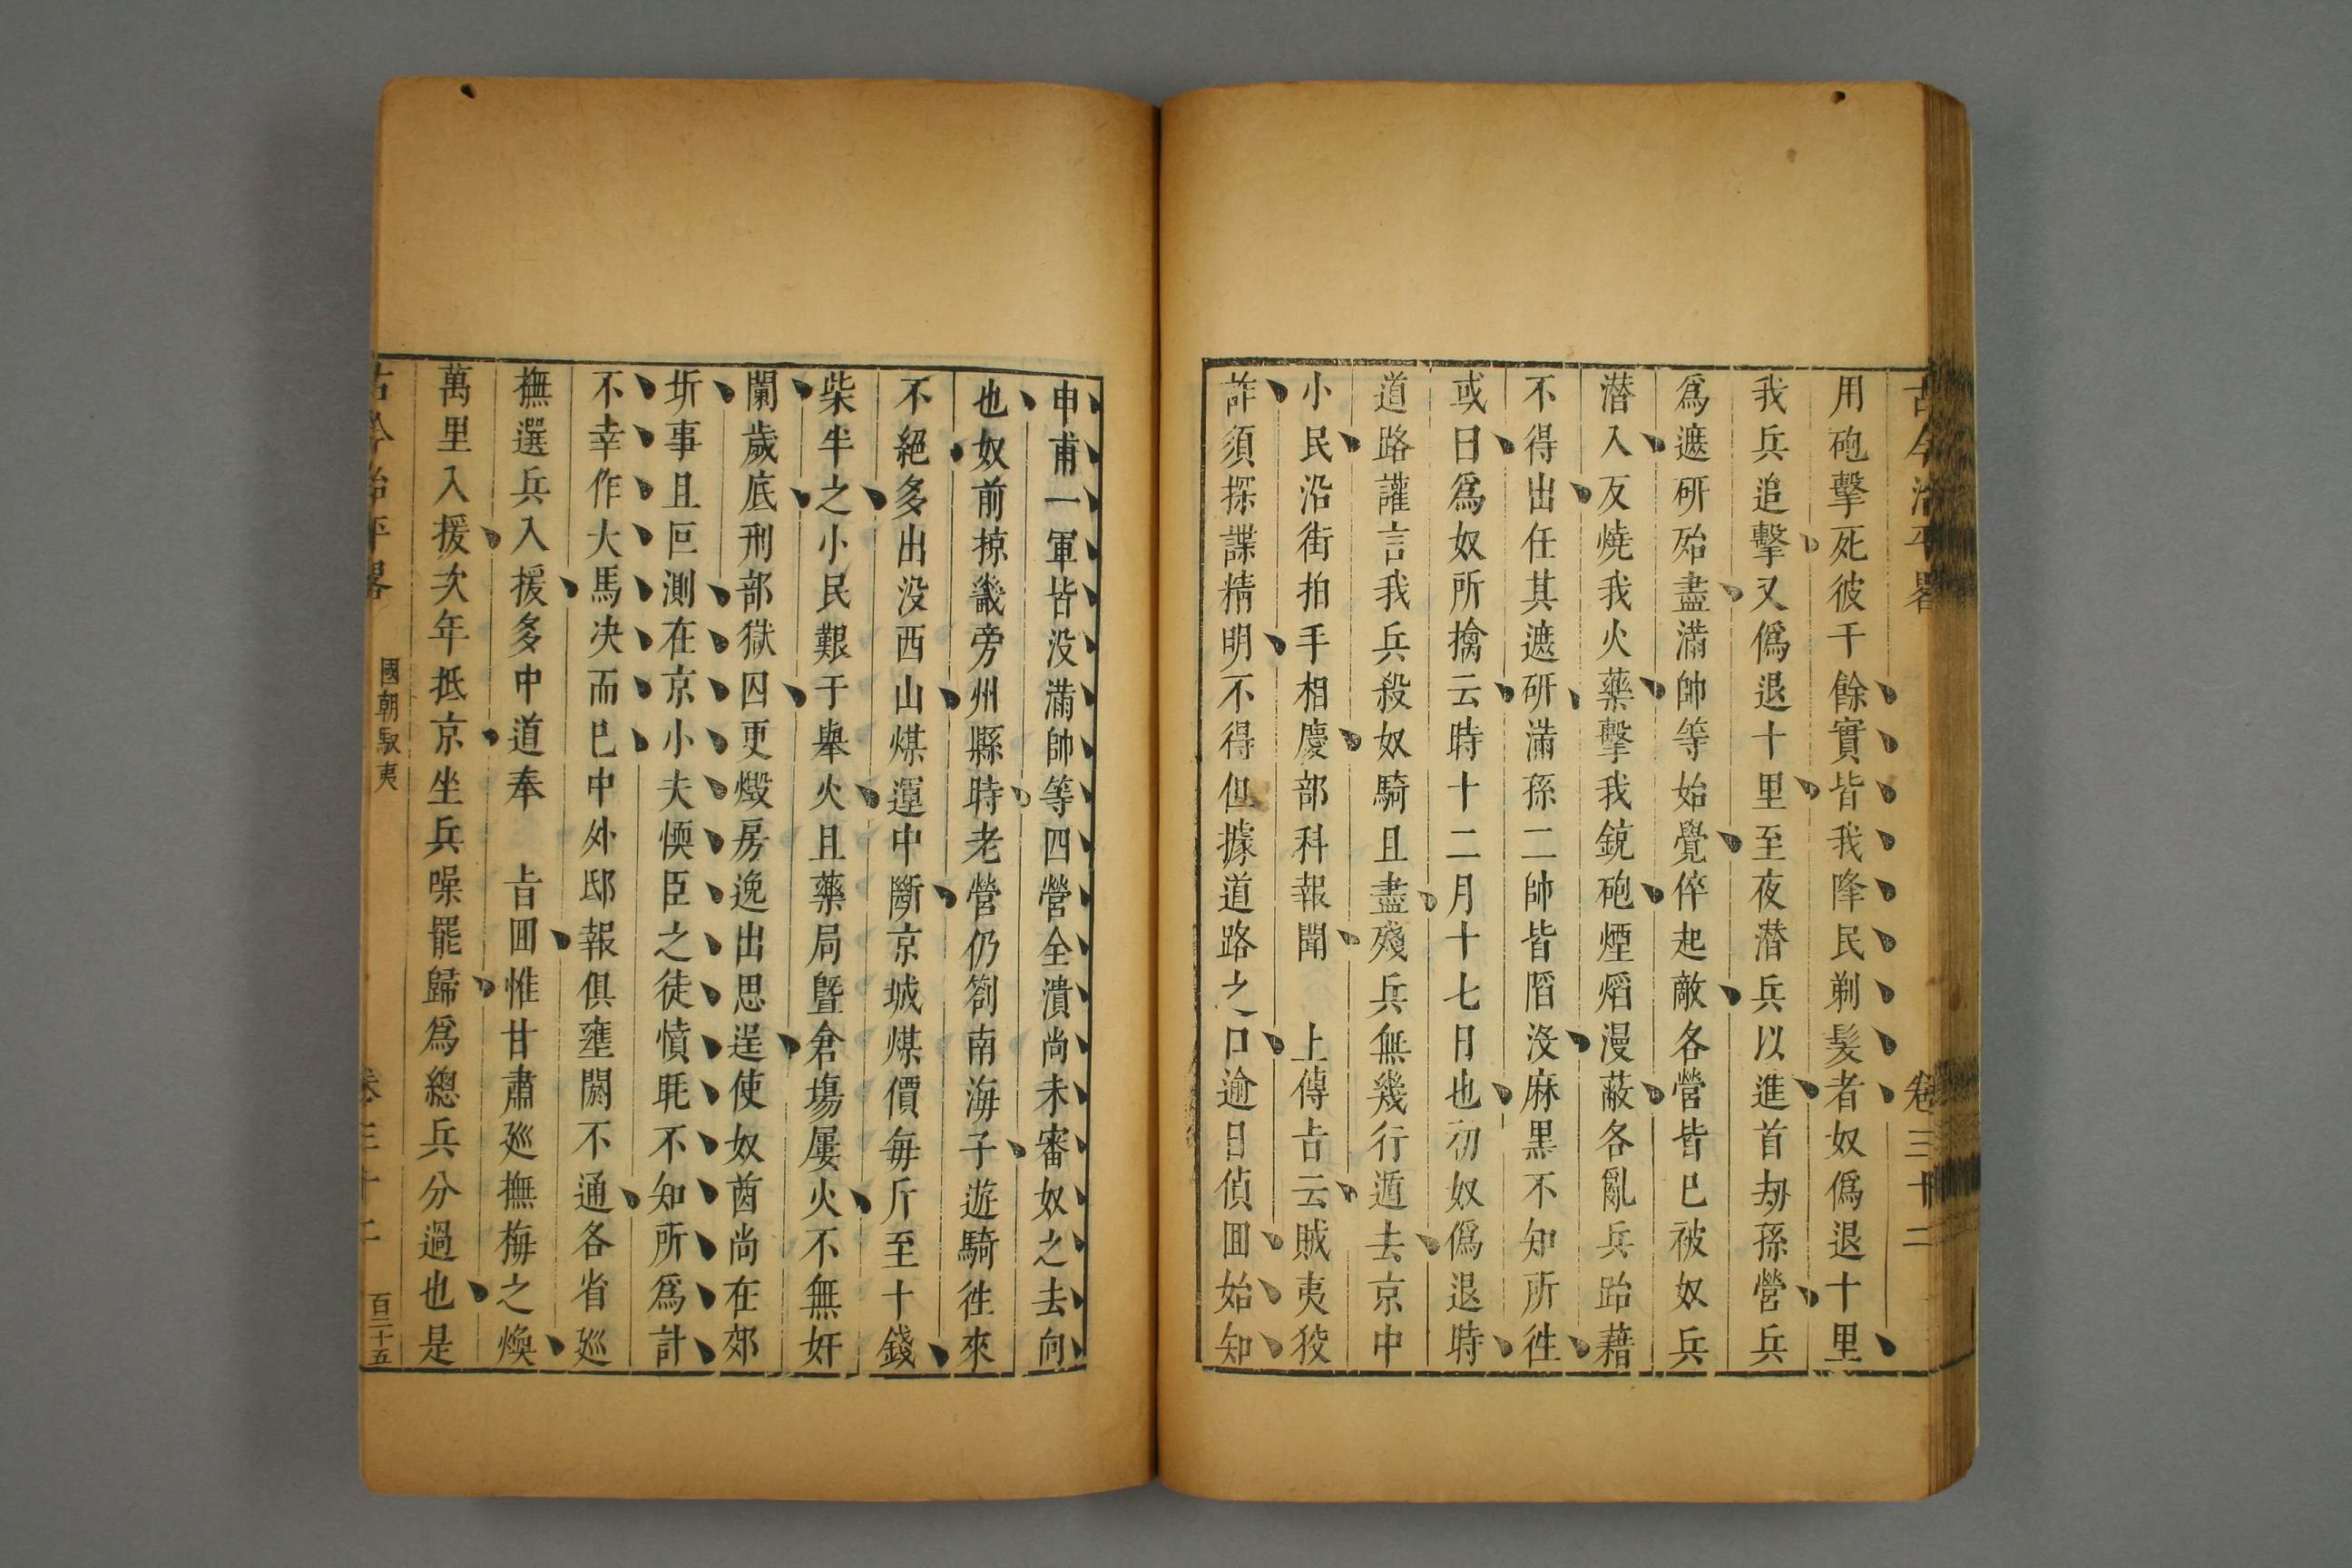 古今治平畧 卷三十二
用砲擊死彼干餘實皆我降民剃髮者奴僞退十里
我兵追擊又僞退十里至夜潜兵以進首刼孫營兵
爲遮硏殆盡滿帥等始覺倅起敵各營皆巳被奴兵
潜入反燒我火藥擊我銃砲煙熖漫蔽各亂兵跆藉
不得出任其遮硏滿孫二帥皆䧟沒麻黒不知所徃
或曰爲奴所擒云時十二月十七日也初奴僞退時
道路讙言我兵殺奴騎且盡殘兵無幾行遁去京中
小民沿街拍手相慶部科報聞 上傳㫖云賊夷狡
詐須探諜精明不得但據道路之口逾日偵囬始知
申甫一軍皆没滿帥等四營全潰尚未審奴之去向
也奴前掠畿旁州縣時老營仍劄南海子遊騎徃來
不絕多出没西山煤運中斷京城煤價每斤至十錢
柴半之小民艱于舉火且藥局曁倉塲屢火不無奸
闌歲底刑部獄囚更燬房逸出思逞使奴酋尚在郊
圻事且叵測在京小夫愞臣之徒憤毦不知所爲計
不幸作大馬决而巳中外邸報俱壅閼不通各省廵
撫選兵入援多中道奉 㫖囬惟甘肅廵撫梅之煥
萬里入援次年抵京坐兵噪罷歸爲總兵分過也是
古今治平畧 國朝馭夷 卷三十二 百三十五